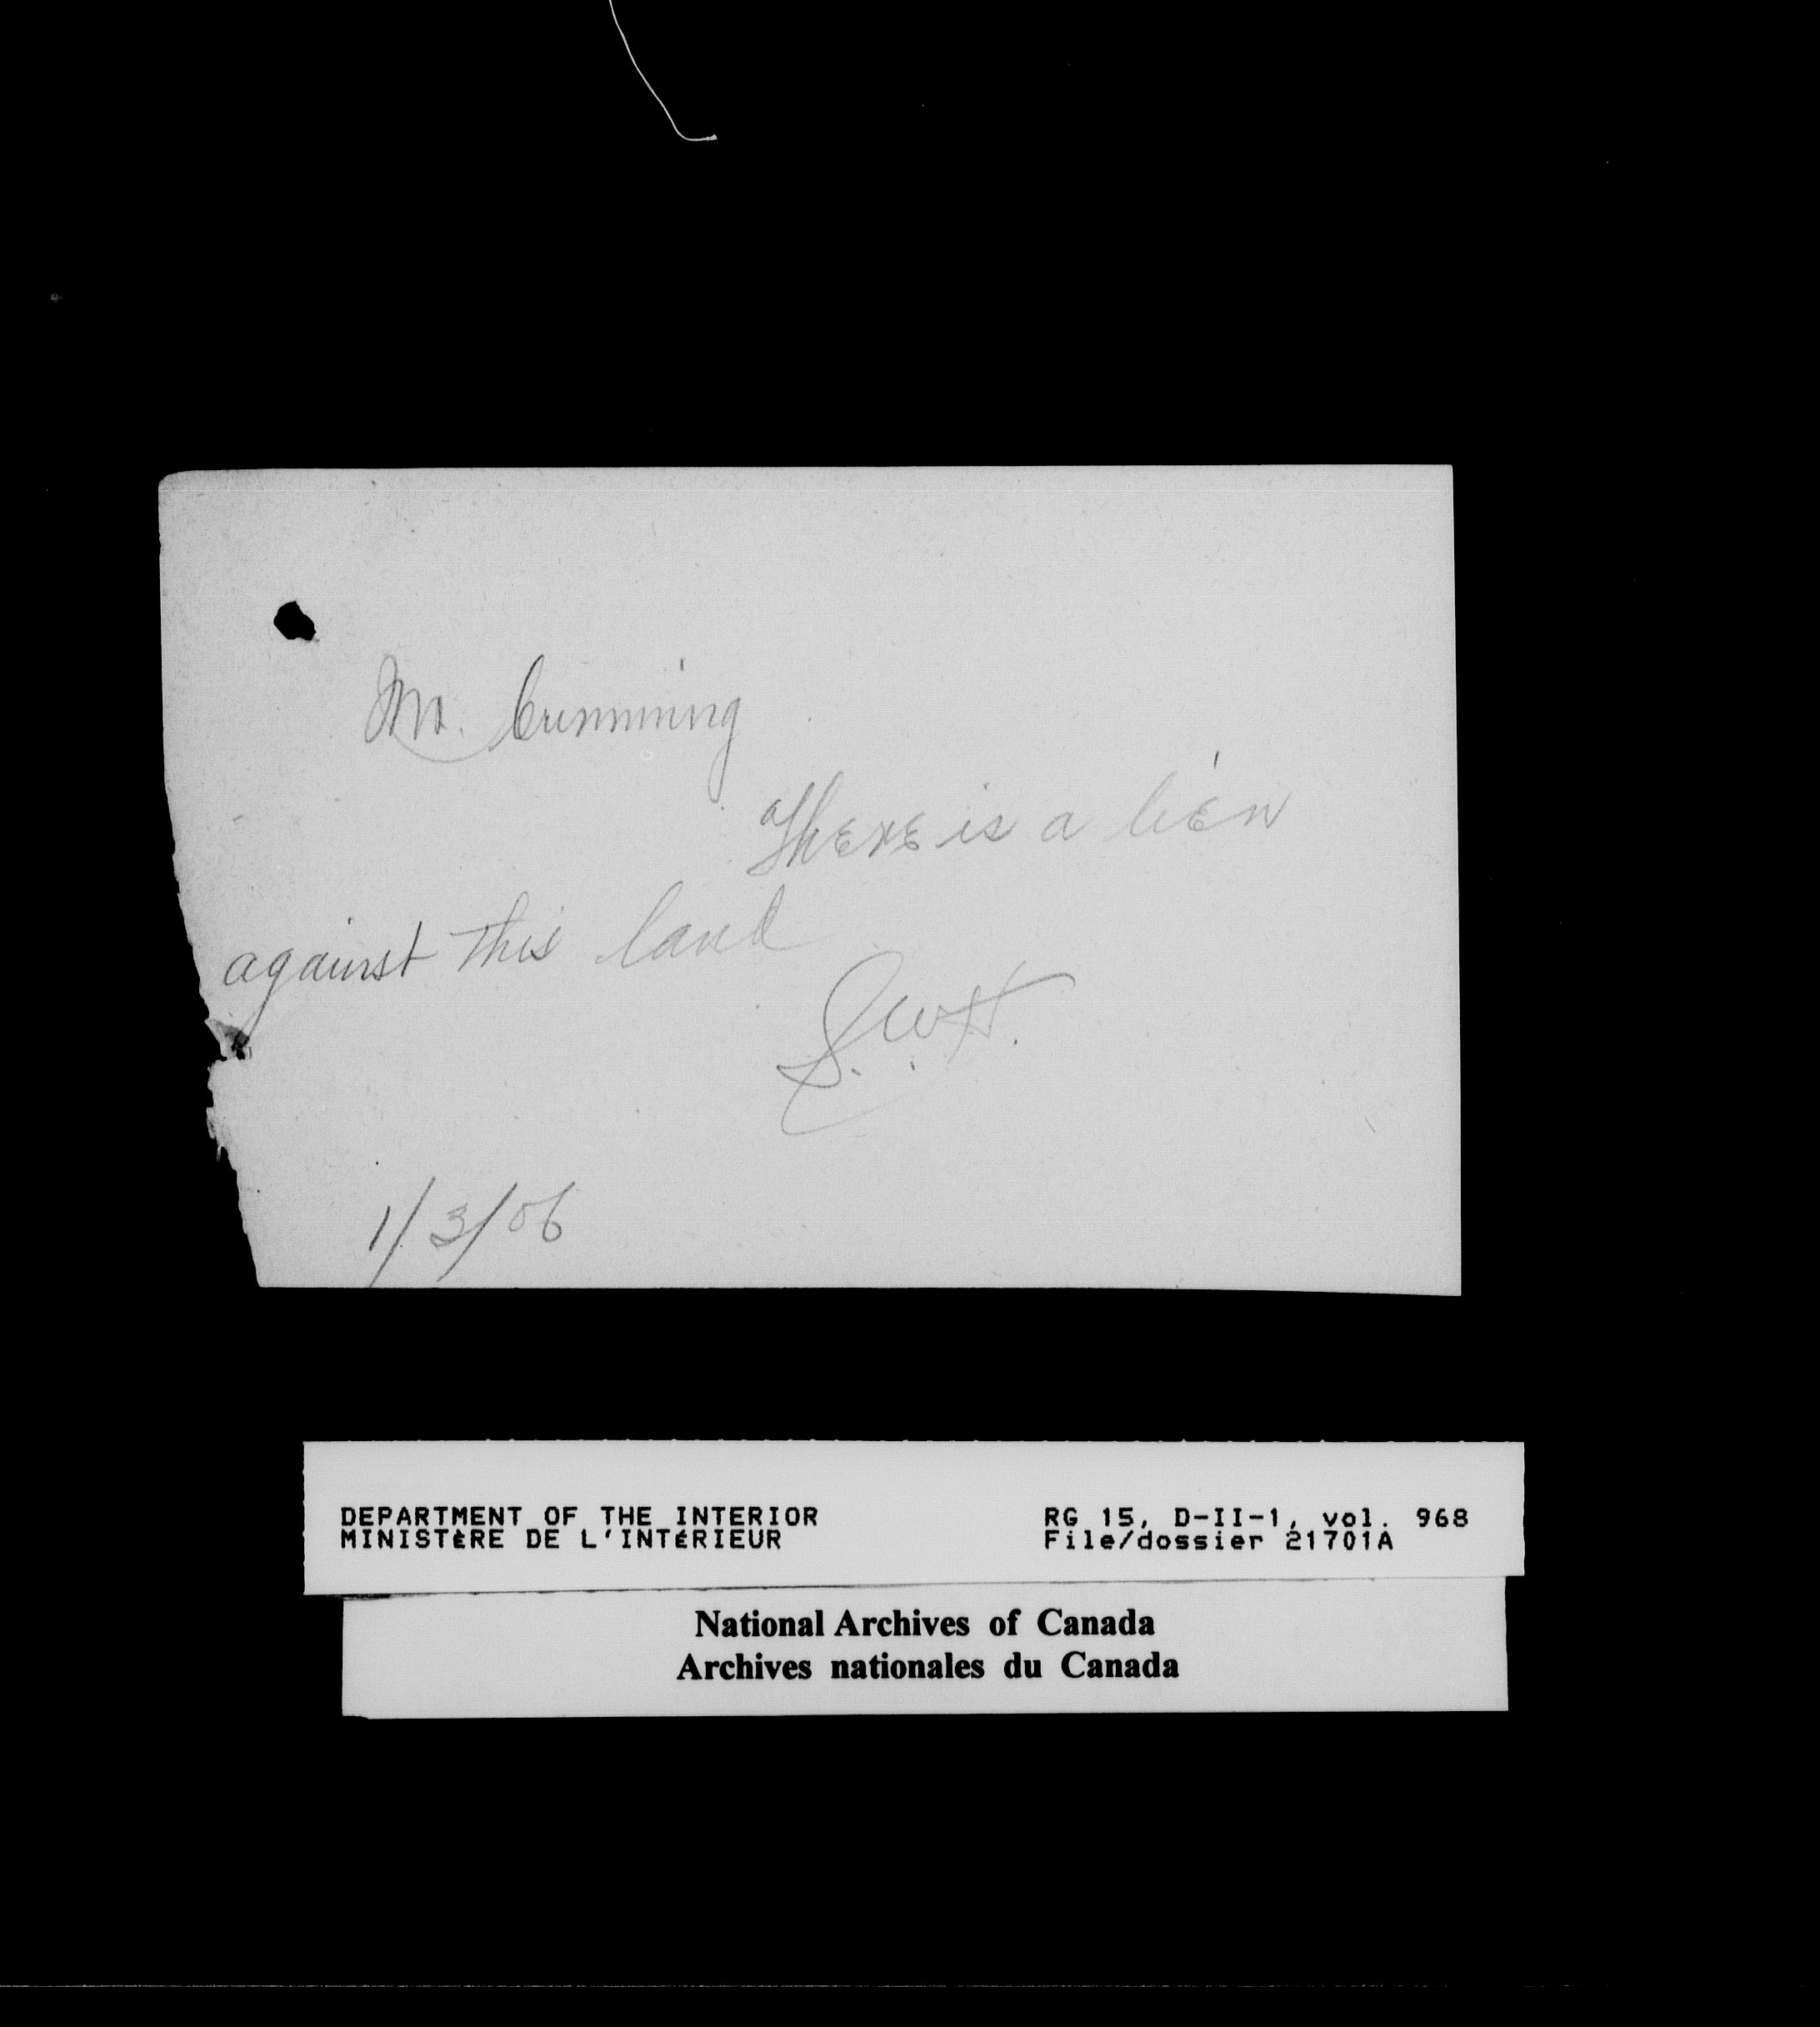 Mr. Cumming
There is a lien
against this land
S.W.H.
1/3/06
DEPARTMENT OF THE INTERIOR
MINISTÈRE DE L'INTÉRIEUR
RG 15, D-II-1, vol. 968
File/dossier 21701A
National Archives of Canada
Archives nationales du Canada